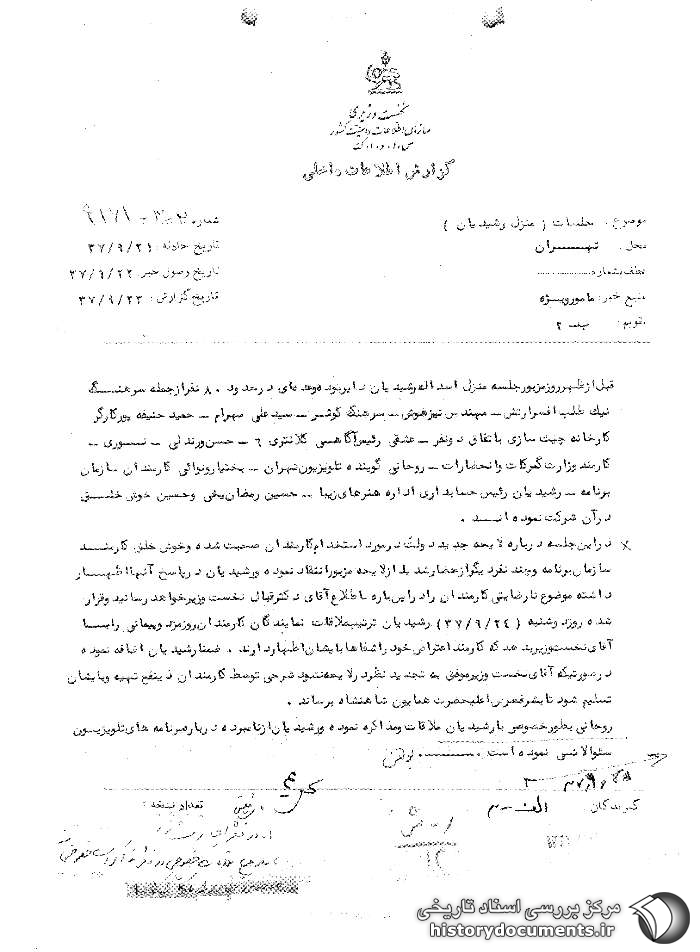 نخست وزیری
سازمان اطلاعات و امنیت کشور
س.ا.و.ا.ک
گزارش اطلاعات داخلی
موضوع: جلسات ( منزل رشیدیان )
شماره
محل: تهــــران
تاریخ حادثه: ۳۷/۹/۲۱
عطف بشماره
تاریخ وصول خبر: ۳۷/۹/۲۲
منبع خبر: مامور ویژه
تاریخ گزارش: ۳۷/۹/۲۳
تقویم: ب ـ ۲
قبل از ظهر روز مزبور جلسه منزل اسداله رشیدیان دایر بوده و عده‌ای در حدود ۸۰ نفر از جمله سرهنگ
نیک طلب افسر ارتش ـ مهندس تیزهوش ـ سرهنگ گوشر ـ سید علی مهرام ـ حمید حنیفه پور کارگر
کارخانه چیت سازی باتفاق دو نفر ـ عشقی رئیس آگاهی کلانتری ۶ ـ حسن ورندلی ـ نسوری ـ
کارمند وزارت گمرکات و انحصارات ـ روحانی گوینده تلویزیون تهران ـ بختیار و نوائی کارمندان سازمان
برنامه ـ رشیدیان رئیس حسابداری اداره هنرهای زیبا ـ حسین رمضان یخی و حسین خوش خلق
در آن شرکت نموده انــد .
× در این جلسه درباره لایحه جدید دولت در مورد استخدام کارمندان صحبت شده و خوش خلق کارمند
سازمان برنامه و چند نفر دیگر از حضار شدیداً از لایحه مزبور انتقاد نموده و رشیدیان در پاسخ آنها اظهار
داشته موضوع نارضایتی کارمندان را در این باره باطلاع آقای دکتر اقبال نخست وزیر خواهد رسانید و قرار
شده روز دوشنبه ( ۳۷/۹/۲۴ ) رشیدیان ترتیب ملاقات نمایندگان کارمندان روزمزد و پیمانی را با
آقای نخست وزیر بدهد که کارمند اعتراض خود را شفاها بایشان اظهار دارند . ضمنا رشیدیان اضافه نموده
در صورتیکه آقای نخست وزیر موفق به تجدید نظر در لایحه نشود شرحی توسط کارمندان ذینفع تهیه و بایشان
تسلیم شود تا بشرفعرض اعلیحضرت همایون شاهنشاه برساند .
روحانی بطور خصوصی با رشیدیان ملاقات و مذاکره نموده و رشیدیان از نامبرده درباره برنامه های تلویزیون
سئوالاتی نموده است .
گیرندگان
الف ـ ۳
تعداد نسخه :
مرکز بررسی اسناد تاریخی
historydocuments.ir